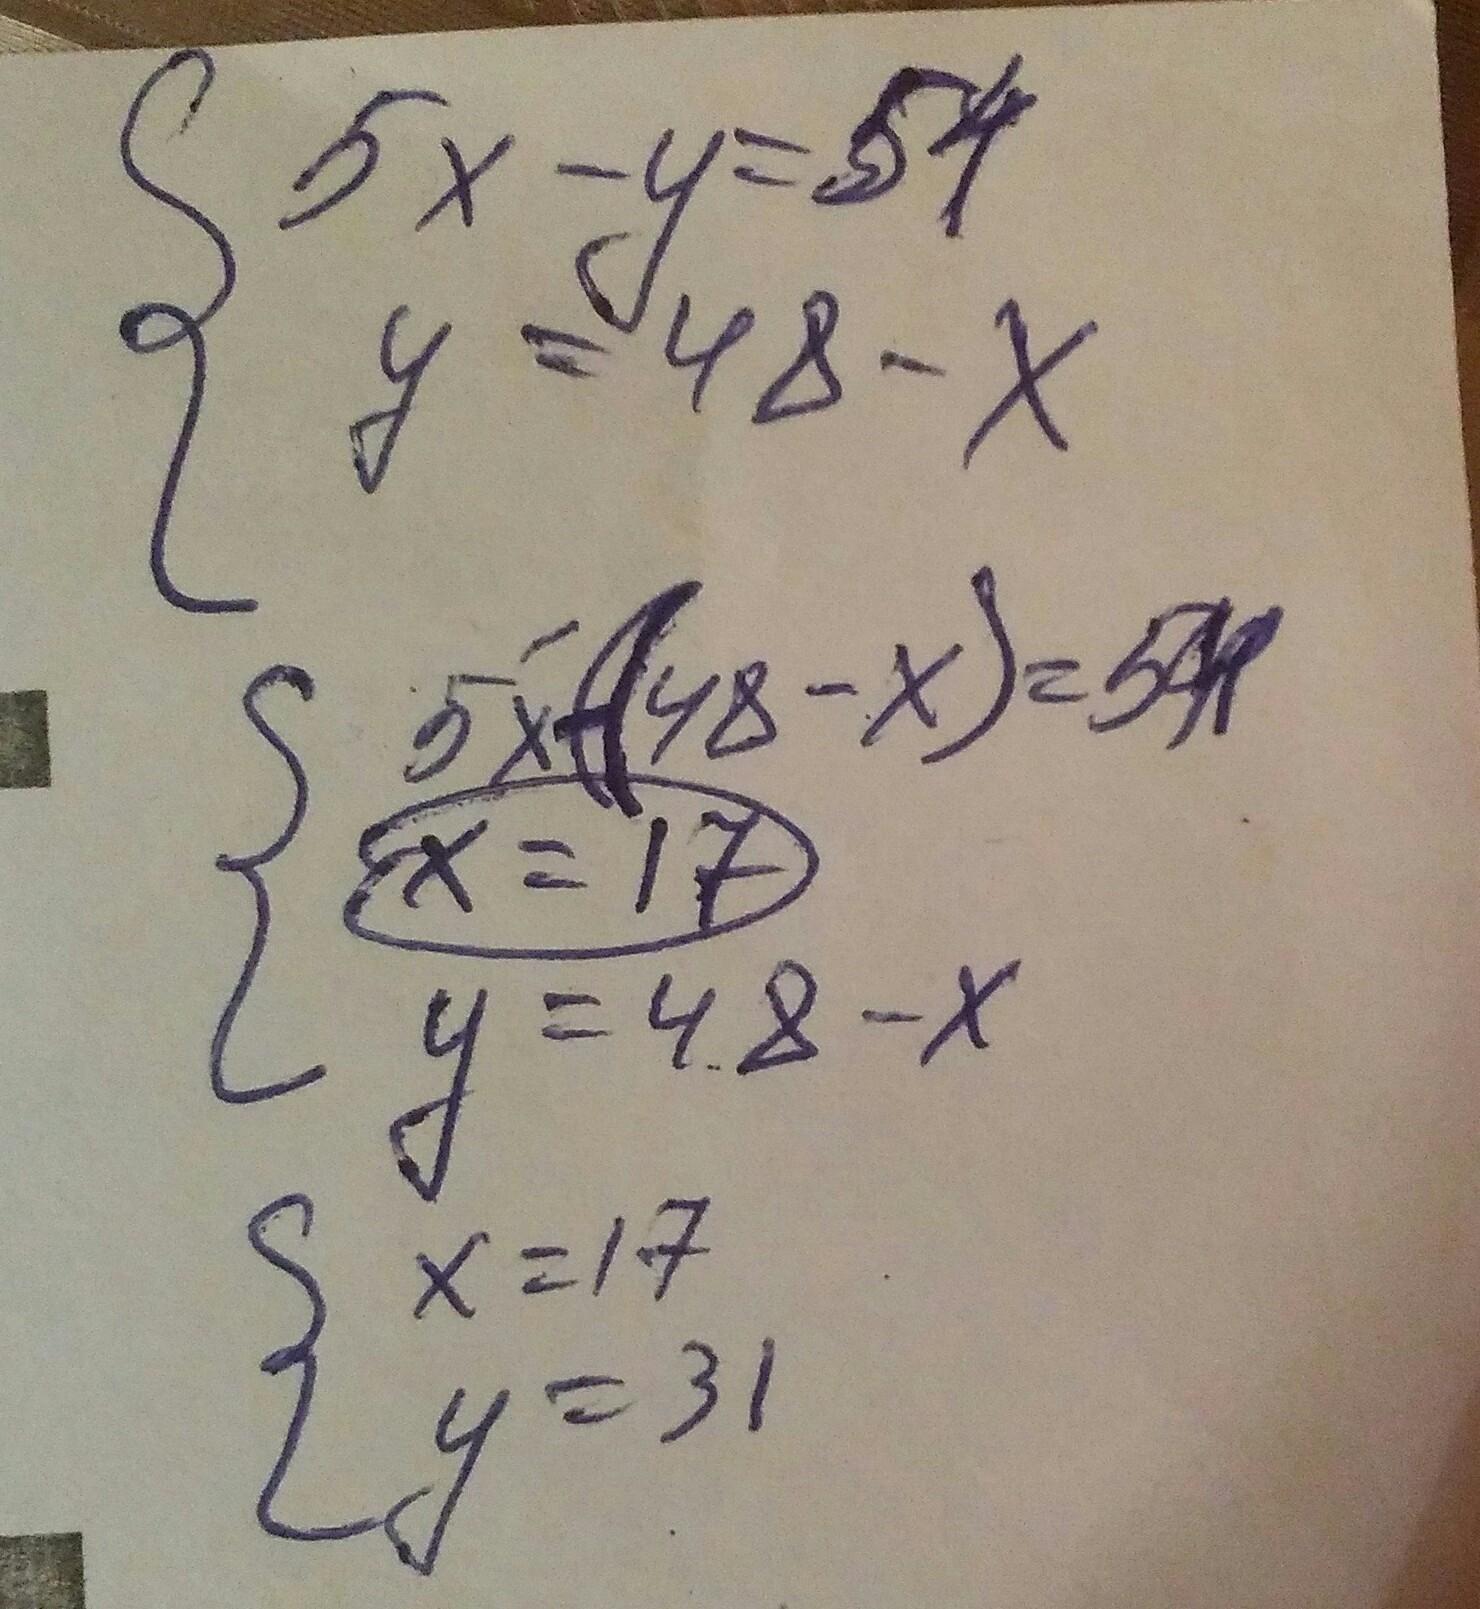 5x - y = 54
y = 48 - x
5x - (48 - x) = 54
x = 17
y = 48 - x
x = 17
y = 31